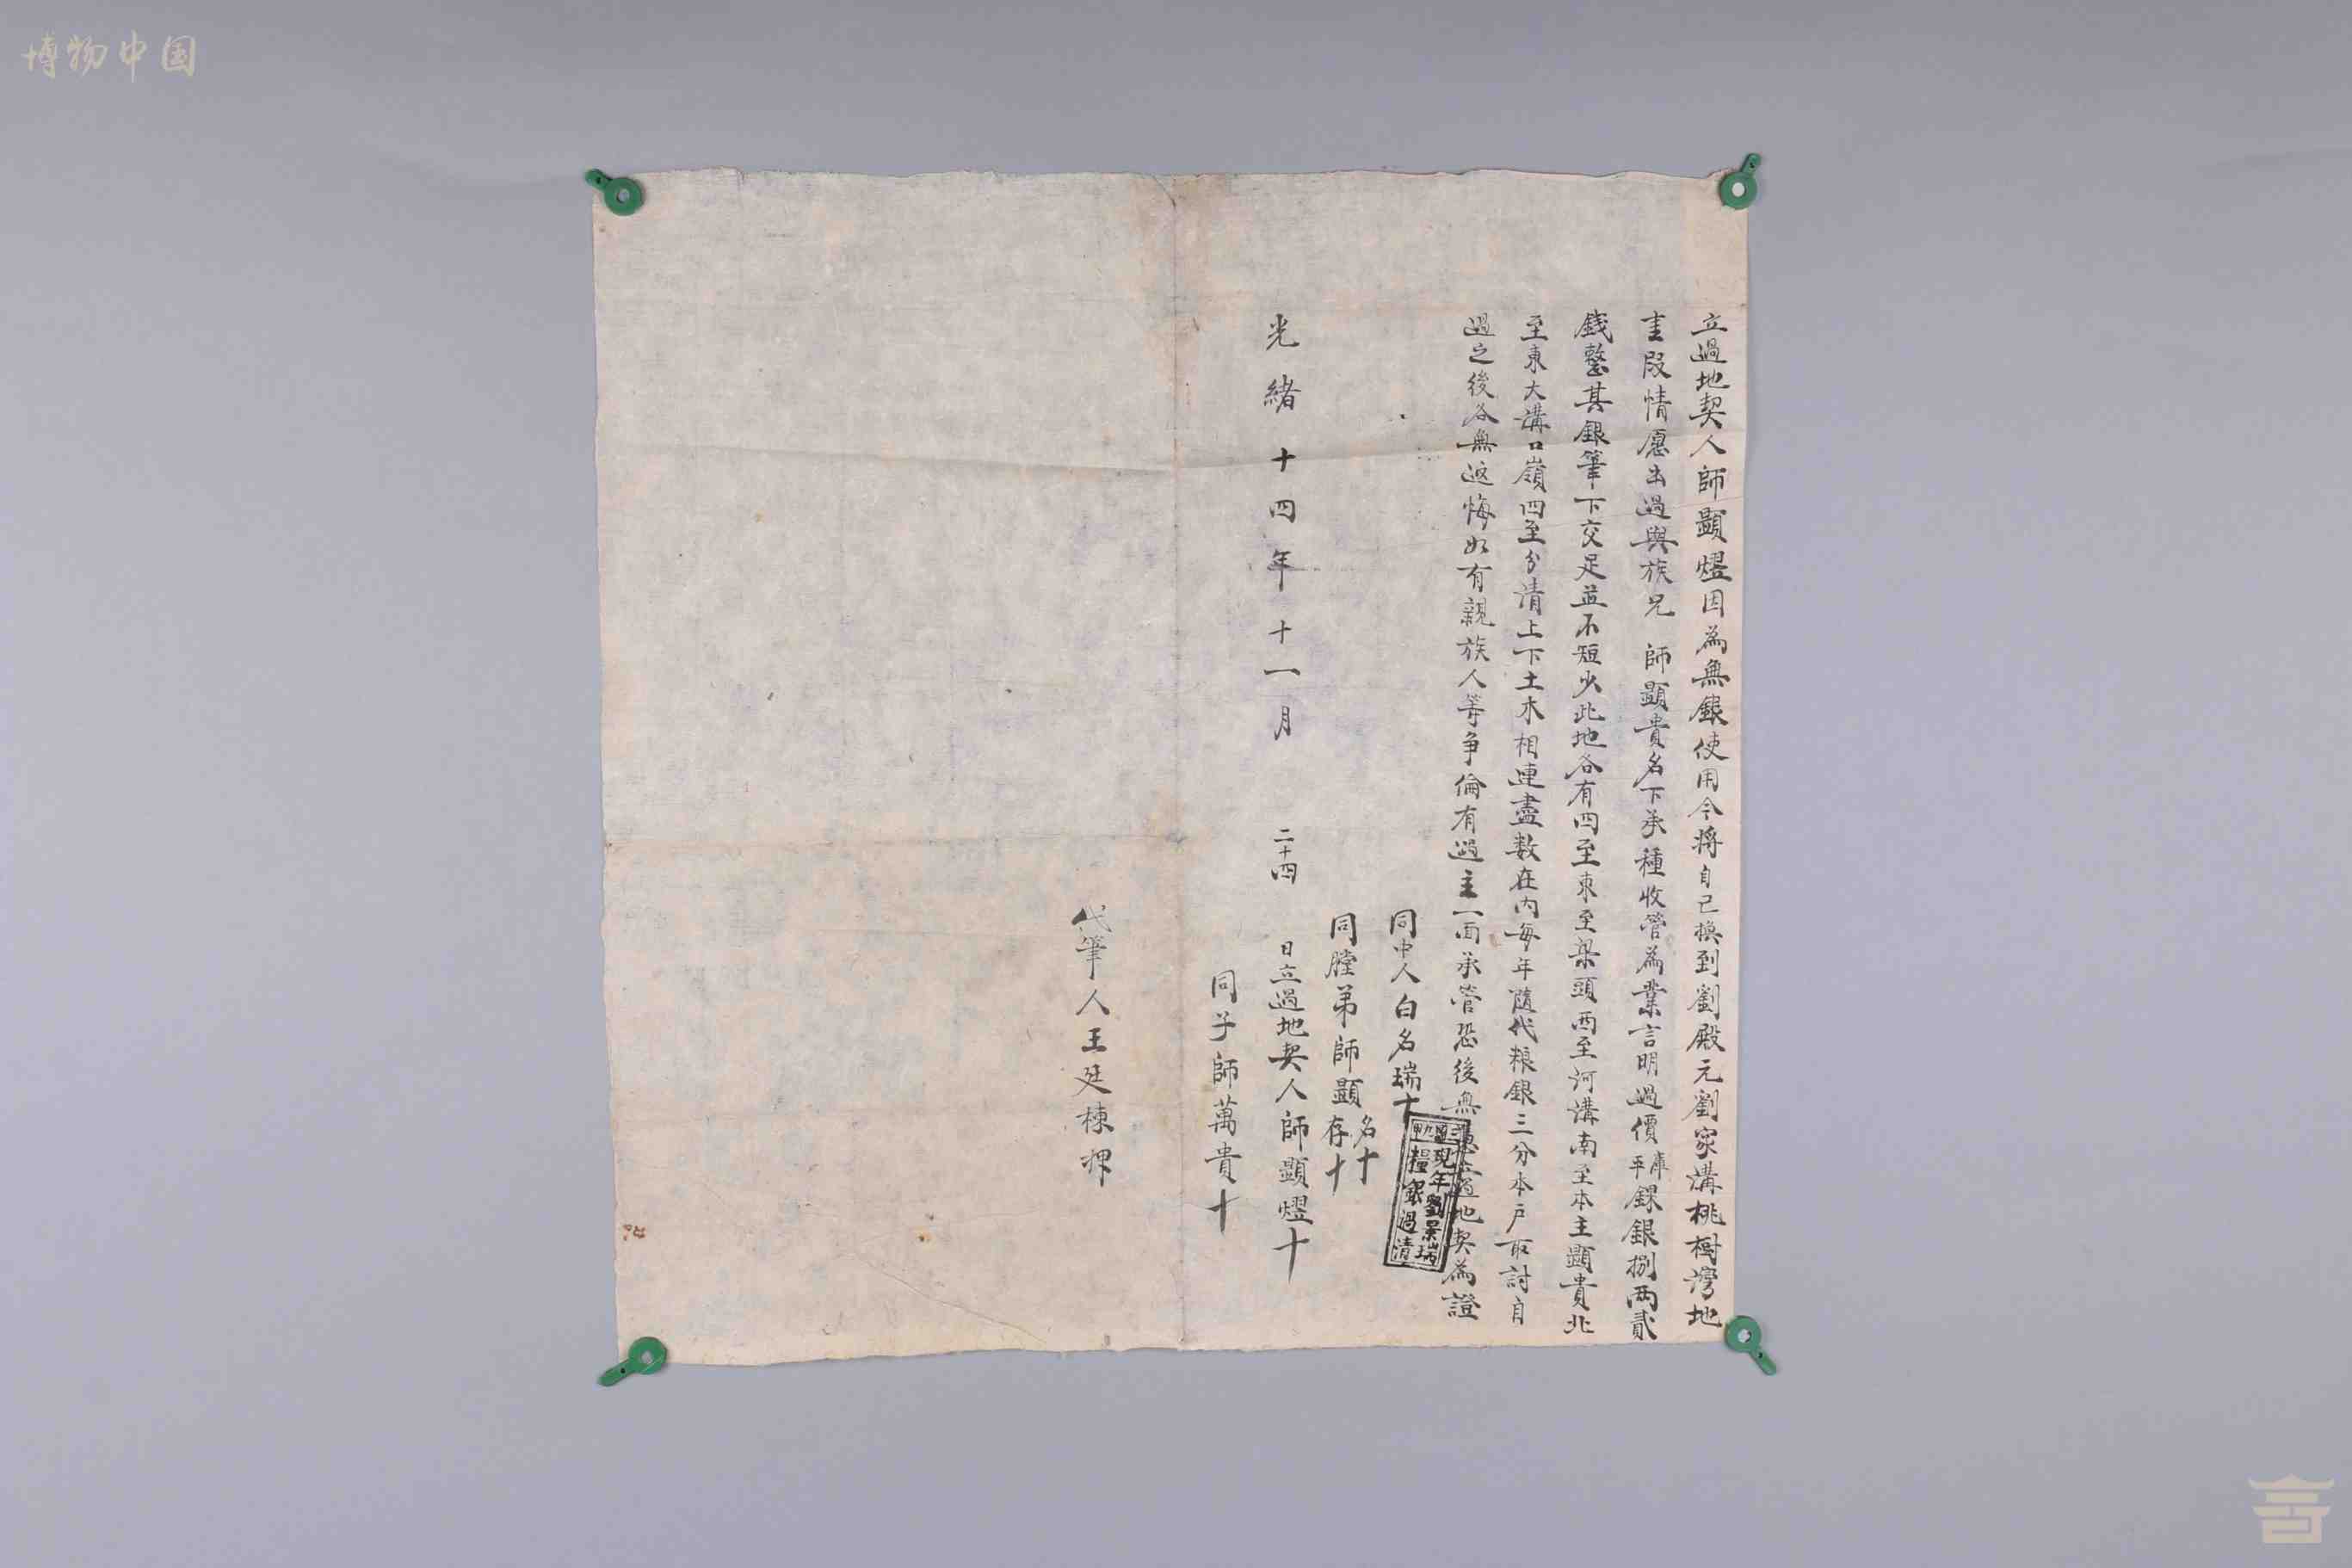 博物中国
立過地契人師顯熠因為無銀使用今將自己換到劉殿元劉家溝桃樹灣地
壹段情愿出過與族兄　師顯貴名下承種收管為業言明過價庫平錁銀捌兩貳
錢整其銀筆下交足並不短少此地各有四至東至梁頭西至河溝南至本主顯貴北
至東大溝口嶺四至分清上下土木相連盡數在内每年隨代粮銀三分本戶取討自
過之後各無返悔如有親族人等爭倫有過主一面承管恐後無憑立過地契為證
同中人白名瑞十
現年劉景瑞
糧銀過清
同膛弟師顯名十存十
光緒十四年十一月二十四日立過地契人師顯熠十
同子師萬貴十
代筆人王廷棟押